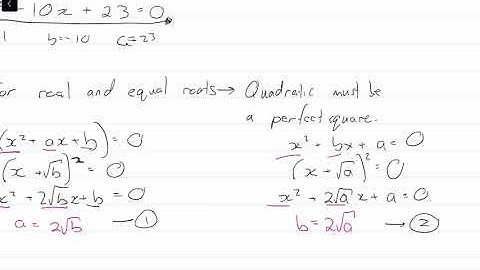 - 10x + 23 = 0
1 b=-10 a=23
or real and equal roots → Quadratic must be
a perfect square.
(x² + ax + b) = 0 x² + bx + a = 0
(x + √b)² = 0 (x + √a)² = 0
x² + 2√b x + b = 0 x² + 2√a x + a = 0
a = 2√b — ① b = 2√a → ②